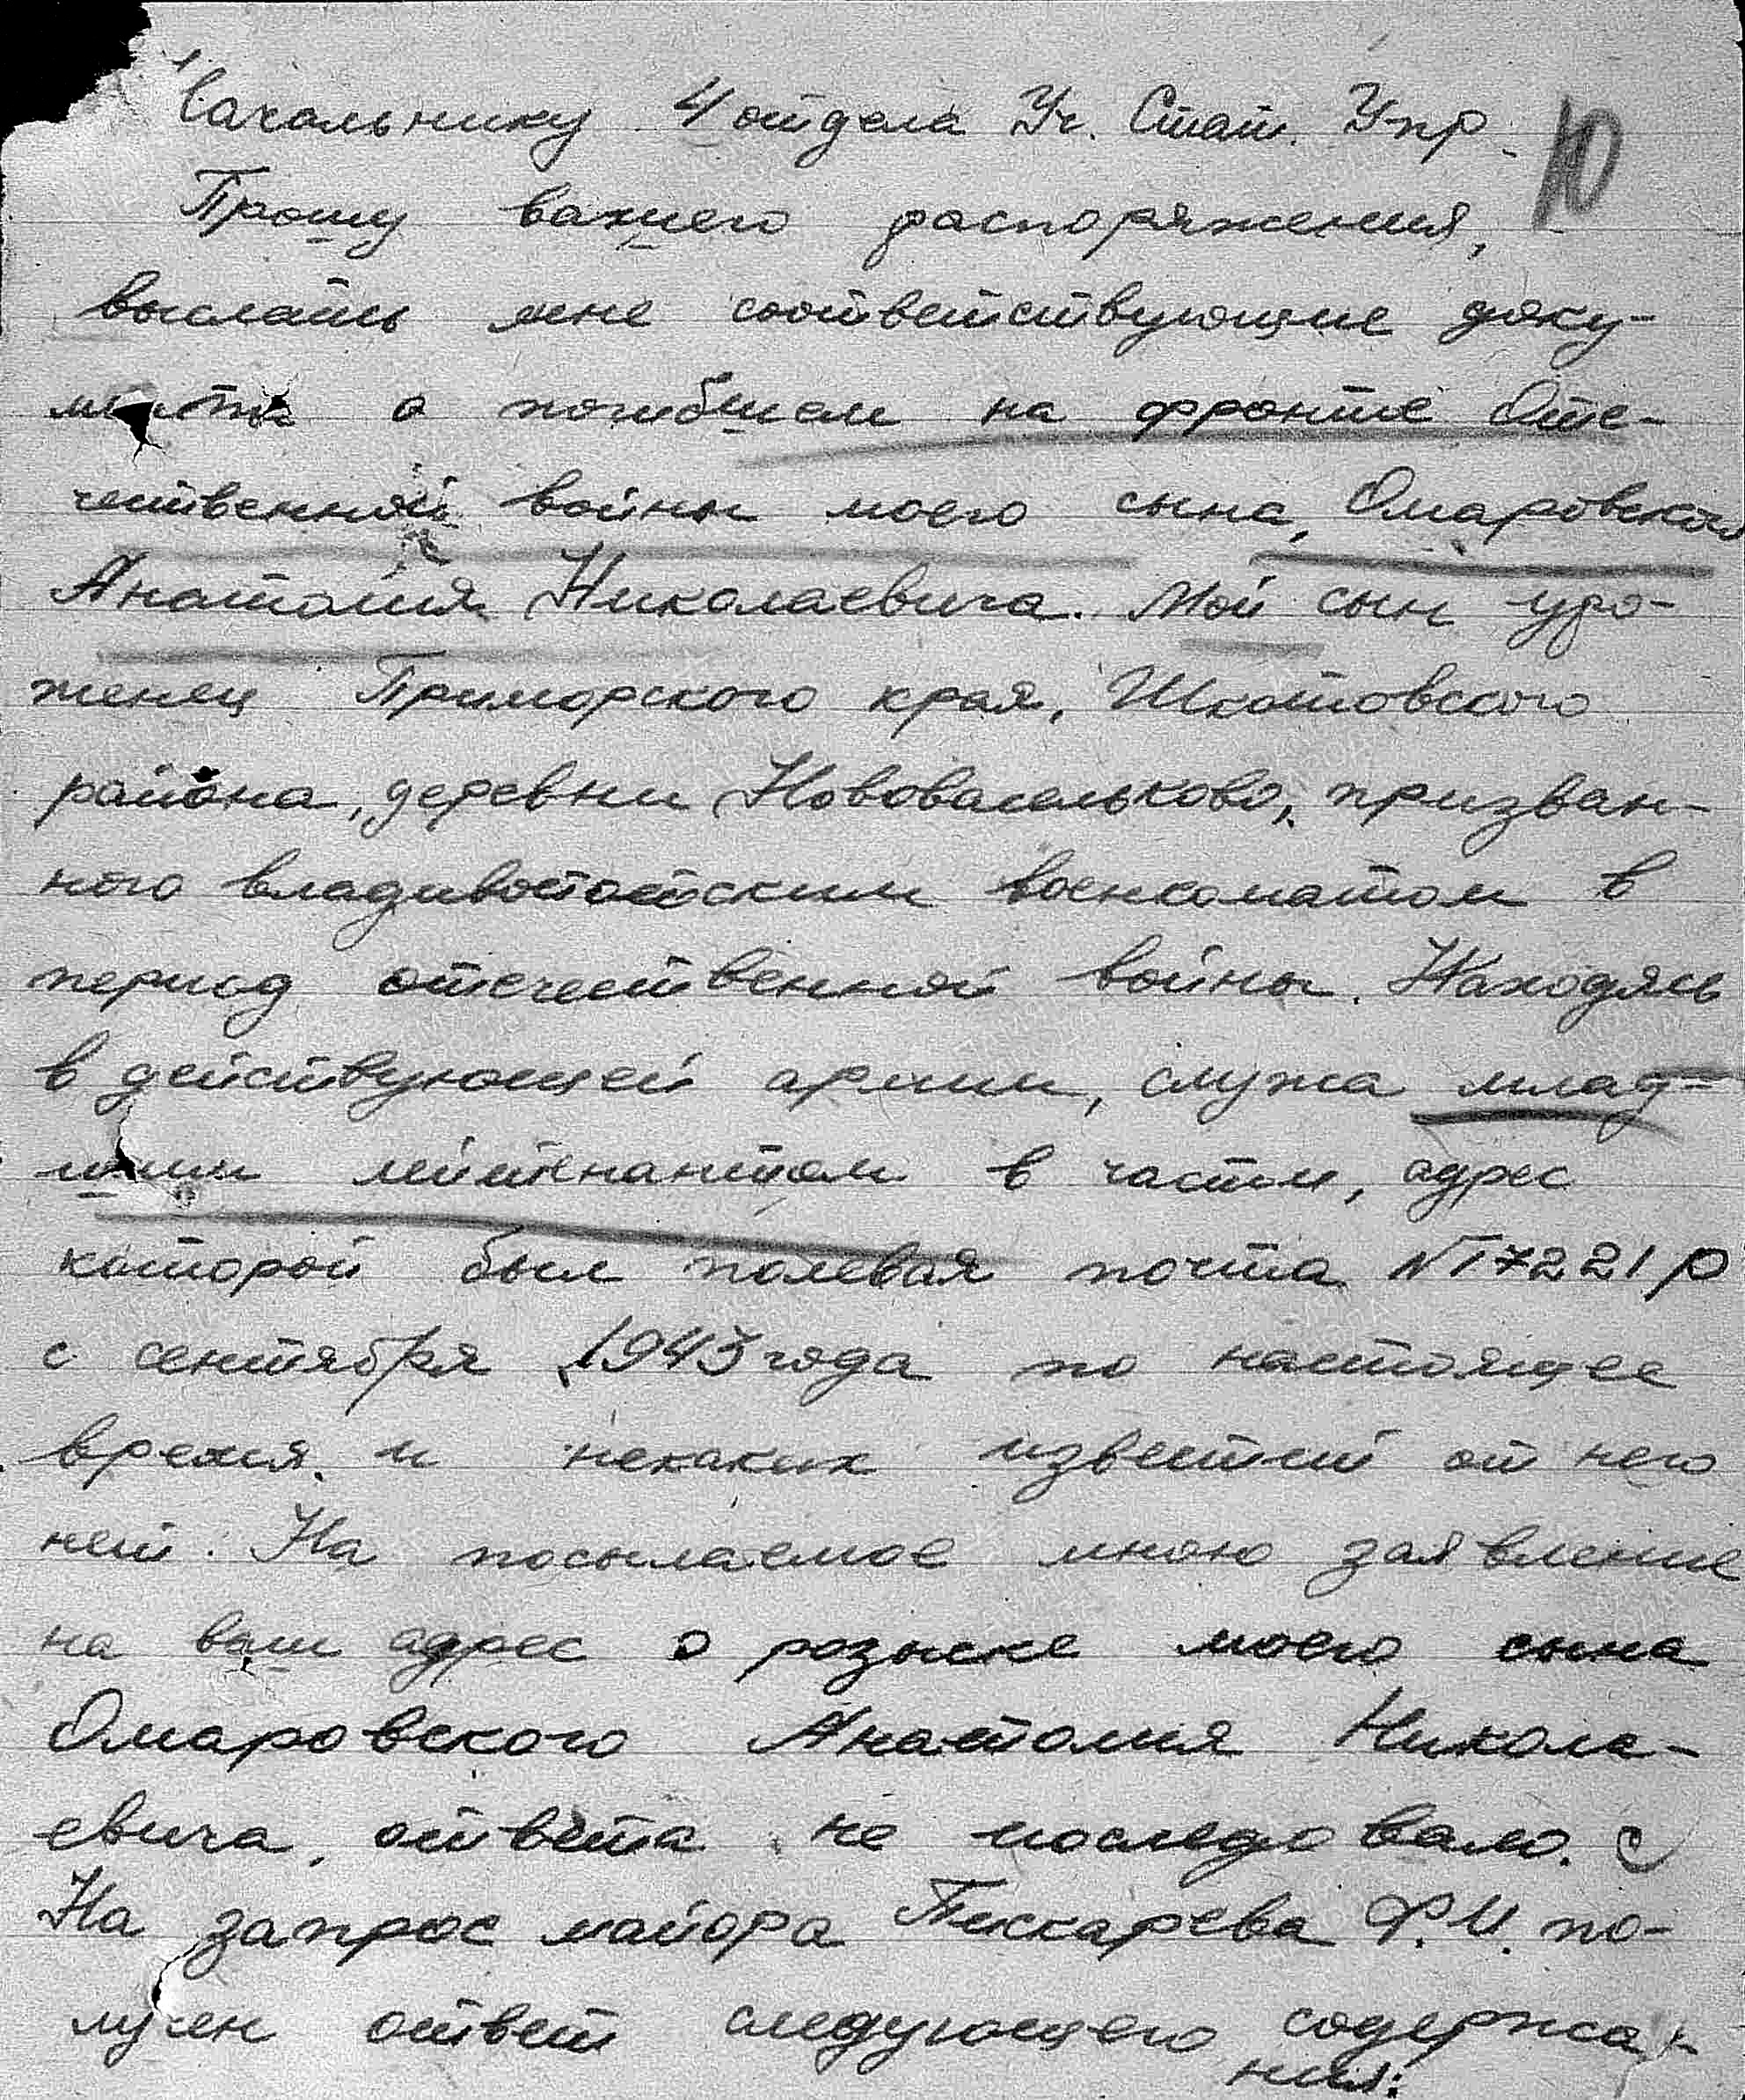 Начальнику 4 отдела Уч. Стат. Упр.
10
Прошу вашего распоряжения,
выслать мне соответствующие доку-
менты о погибшем на фронте Оте-
чественной войны моего сына, Омаровского
Анатолия Николаевича. Мой сын уро-
женец Приморского края, Шкотовского
района, деревни Нововасильково, призван-
ного владивостотским военкоматом в
период отечественной войны. Находясь
в действующей армии, служа млад-
шим лейтенантом в части, адрес
которой был полевая почта № 17221 р
с сентября 1943 года по настоящее
время и некаких известий от него
нет. На посылаемое мною заявление
на ваш адрес о розыске моего сына
Омаровского Анатолия Никола-
евича, ответа не последовало.
На запрос майора Пискарева Ф.И. по-
лучен ответ следующего содержа-
ния: